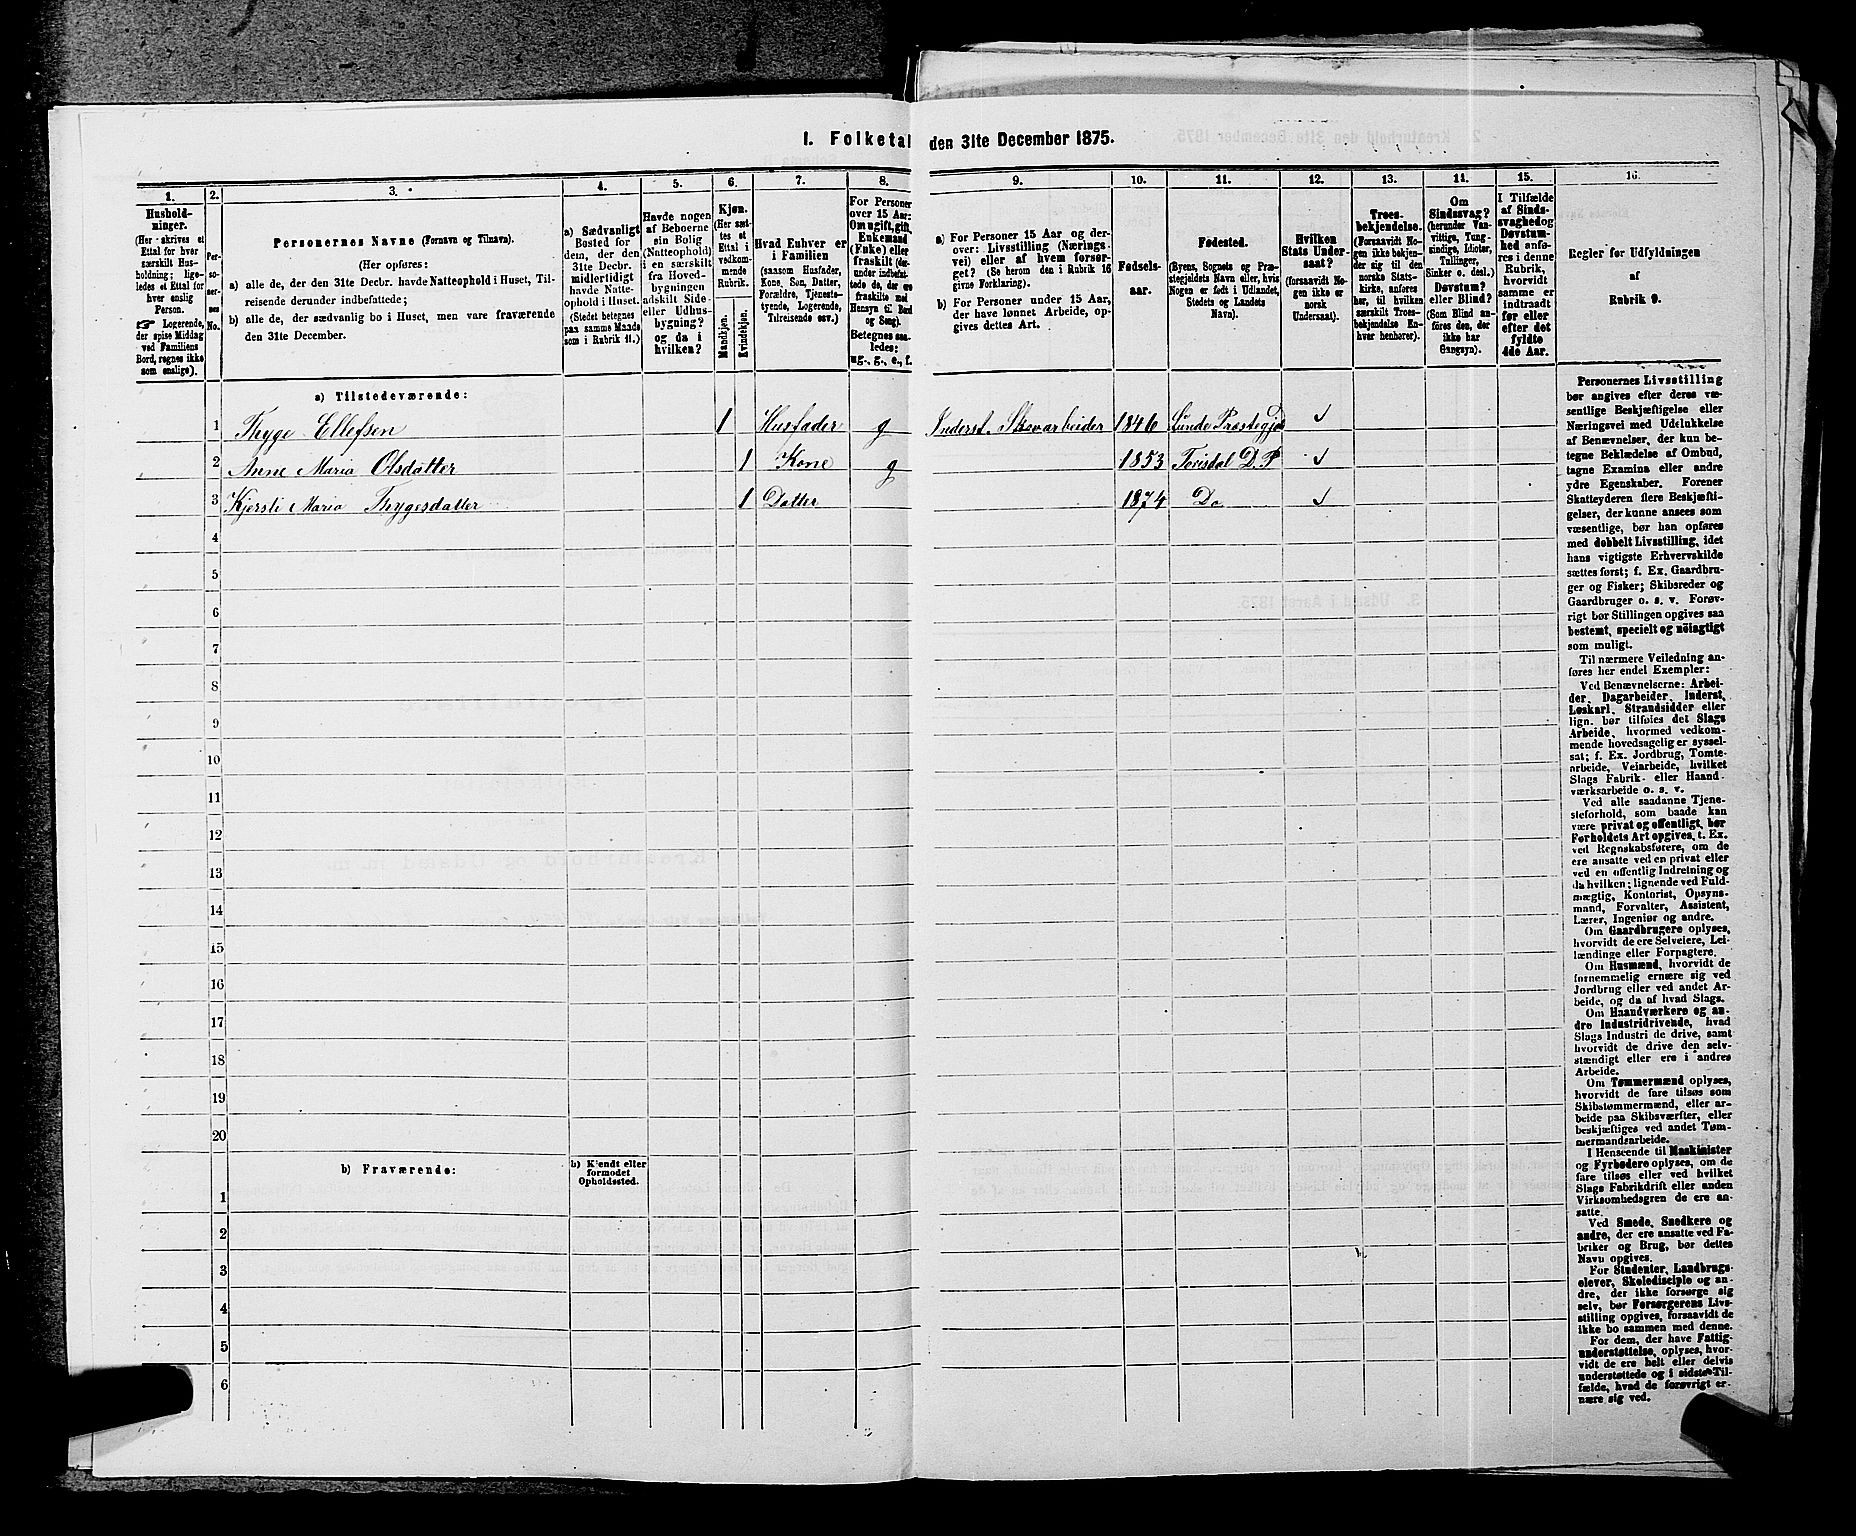 I. Folketal den 31te December 1875.
1. 2. 3. 4. 5. 6. 7. 8. 9. 10. 11. 12. 13. 14. 15. 16.
Hushold-
ninger.
(Her skrives et
Ettal for hver
særskilt Hus-
holdning; lige-
ledes et Ettal for
hver enslig
Person.
☞ Logerende,
der spise Middag
ved Familiens
Bord, regnes ikke
som enslige).
Per-
so-
ner-
nes
No.
Personernes Navne (Fornavn og Tilnavn).
(Her opføres:
a) alle de, der den 31te Decbr. havde Natteophold i Huset, Til-
reisende derunder indbefattede;
b) alle de, der sædvanlig bo i Huset, men vare fraværende
den 31te December.
a) Sædvanligt
Bosted for
dem, der den
31te Decbr.
midlertidigt
havde Natte-
ophold i Huset.
(Stedet betegnes
paa samme Maade
som i Rubrik 11.)
Havde nogen
af Beboerne
sin Bolig
(Natteophold)
i en særskilt
fra Hoved-
bygningen
adskilt Side-
eller Udhus-
bygning?
og da i
hvilken?
Kjøn.
(Her sæt-
tes et
Ettal i
vedkom-
mende
Rubrik.
Mandkjøn.
Kvindekjøn.
Hvad Enhver er
i Familien
(saasom Husfader,
Kone, Søn, Datter,
Forældre, Tjeneste-
tyende, Logerende,
Tilreisende osv.)
For Personer
over 15 Aar:
Om ugift, gift,
Enkemand
(Enke) eller
fraskilt (der-
under indbefat-
tede de, der ere
fraskilte med
Hensyn til Bord
og Seng).
Betegnes saa-
ledes:
ug., g., e., f.
a) For Personer 15 Aar og der-
over: Livsstilling (Nærings-
vei) eller af hvem forsør-
get? (Se herom den i Rubrik 16
givne Forklaring).
b) For Personer under 15 Aar,
der have lønnet Arbeide, op-
gives dettes Art.
Fødsels-
aar.
Fødested.
(Byens, Sognets og Præ-
stegjeldets Navn eller, hvis
Nogen er født i Udlandet,
Stedets og Landets
Navn).
Hvilken
Stats Under-
saat?
(forsaavidt No-
gen ikke er
norsk
Undersaat).
Troes-
bekjendelse.
(Forsaavidt No-
gen ikke bekjen-
der sig til den
norske Stats-
kirke, anføres
her, til hvilken
særskilt Troes-
bekjendelse En-
hver henhører).
Om
Sindssvag?
(herunder Van-
vittige, Tung-
sindige, Idioter,
Tullinger,
Sinker o. desl.)
Døvstum?
eller Blind?
(Som Blind an-
føres den, der
ikke har
Gangsyn).
I Tilfælde
af Sinds-
svaghed og
Døvstum-
hed anfø-
res i denne
Rubrik,
hvorvidt
samme er
indtraadt
før eller
efter det
fyldte
4de Aar.
Regler for Udfyldningen
af
Rubrik 9.
a) Tilstedeværende:
1 Thyge Ellefsen 1 Husfader g Inderst. Skovarbeider 1846 Lunde Præstegj
2 Anne Maria Olsdatter 1 Kone g 1853 Torisdal D. P
3 Kjersti Maria Thygesdatter 1 Datter 1874 Do
4
5
6
7
8
9
10
11
12
13
14
15
16
17
18
19
20
b) Fraværende:
b) Kjendt eller
formodet
Opholdssted.
1
2
3
4
5
6
Personernes Livsstilling
bør angives efter deres væ-
sentlige Beskjæftigelse eller
Næringsvei med Udelukkelse
af Benævnelser, der kun be-
tegne Beklædelse af Ombud,
tagne Examina eller andre
ydre Egenskaber. Forener
Skatteyderen flere Beskjæfti-
gelser, der kunne ansees som
væsentlige, bør han opføres
med dobbelt Livsstilling, idet
hans vigtigste Erhvervskilde
sættes først; f. Ex. Gaardbru-
ger og Fisker; Skibsreder og
Gaardbruger o. s. v. Forøv-
rigt bør Stillingen opgives saa
bestemt, specielt og nöiagtigt
som muligt.
Til nærmere Veiledning an-
føres her endel Exempler:
Ved Benævnelserne: Arbei-
der, Dagarbeider, Inderst,
Løskarl, Strandsidder eller
lign. bør tilføies det Slags
Arbeide, hvormed vedkom-
mende hovedsagelig er syssel-
sat; f. Ex. Jordbrug, Tomte-
arbeide, Veiarbeide, hvilket
Slags Fabrik- eller Haand-
værksarbeide o. s. v.
Ved alle saadanne Tjene-
steforhold, som baade kan
være privat og offentligt, bør
Forholdets Art opgives, t. Ex.
ved Regnskabsførere, om de
ere ansatte ved en privat eller
ved en offentlig Indretning og
da hvilken; lignende ved Fuld-
mægtig, Kontorist, Opsyns-
mand, Forvalter, Assistent,
Lærer, Ingeniør og andre.
Om Gaardbrugere oplyses,
hvorvidt de ere Selveiere, Lei-
lændinge eller Forpagtere.
Om Husmænd, hvorvidt de
fornemmelig ernære sig ved
Jordbrug eller ved andet Ar-
beide, og da af hvad Slags.
Om Haandværkere og an-
dre Industridrivende, hvad
Slags Industri de drive, samt
hvorvidt de drive den selv-
stændigt eller ere i andres
Arbeide.
Om Tømmermænd oplyses,
hvorvidt de fare tilsøs som
Skibstømmermænd, eller ar-
beide paa Skibsværfter, eller
beskjæftiges ved andet Tøm-
mermandsarbeide.
I Henseende til Maskinister
og Fyrbødere oplyses, om de
fare tilsøs eller ved hvilket
Slags Fabrikdrift eller anden
Virksomhedsgren de ere an-
satte.
Ved Smede, Snedkere og
andre, der ere ansatte ved Fa-
briker og Brug, bør dettes
Navn opgives.
For Studenter, Landbrugs-
elever, Skoledisciple og an-
dre, der ikke forsørge sig
selv, bør Forsørgerens Livs-
stilling opgives, forsaavidt de
ikke bo sammen med denne.
For dem, der have Fattig-
understøttelse, oplyses, hvor-
vidt de ere helt eller delvis
understøttede og i sidste Til-
fælde, hvad de forøvrigt er-
nære sig ved.